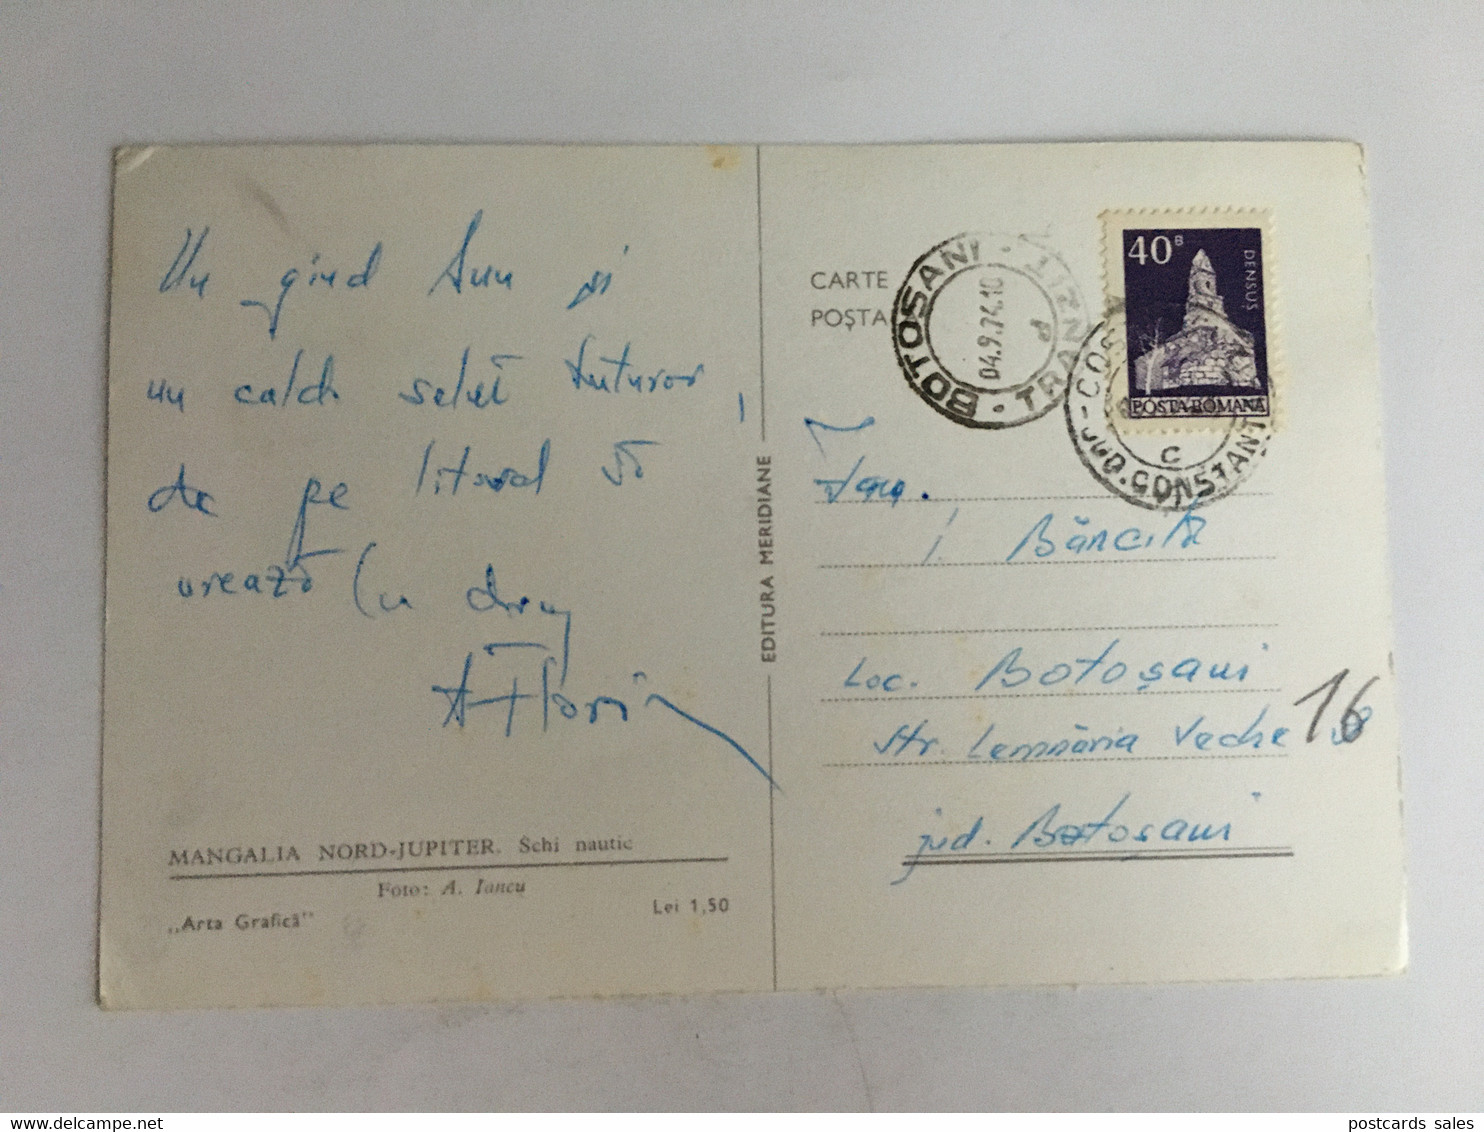 Un gînd bun și
un cald salut tuturor,
de pe litoral vă
urează cu drag
Florin
MANGALIA NORD-JUPITER. Schi nautic
Foto: A. Iancu
„Arta Grafică"
Lei 1,50
EDITURA MERIDIANE
CARTE
POȘTA
BOTOȘANI · TRANZIT ·
04.9.74.10
P
40B
DENSUȘ
POSTA ROMANA
JUD. CONSTANT
C
Fam.
Băncilă
Loc. Botoșani
Str. Lemnăria Veche
16
jud. Botoșani
postcards sales